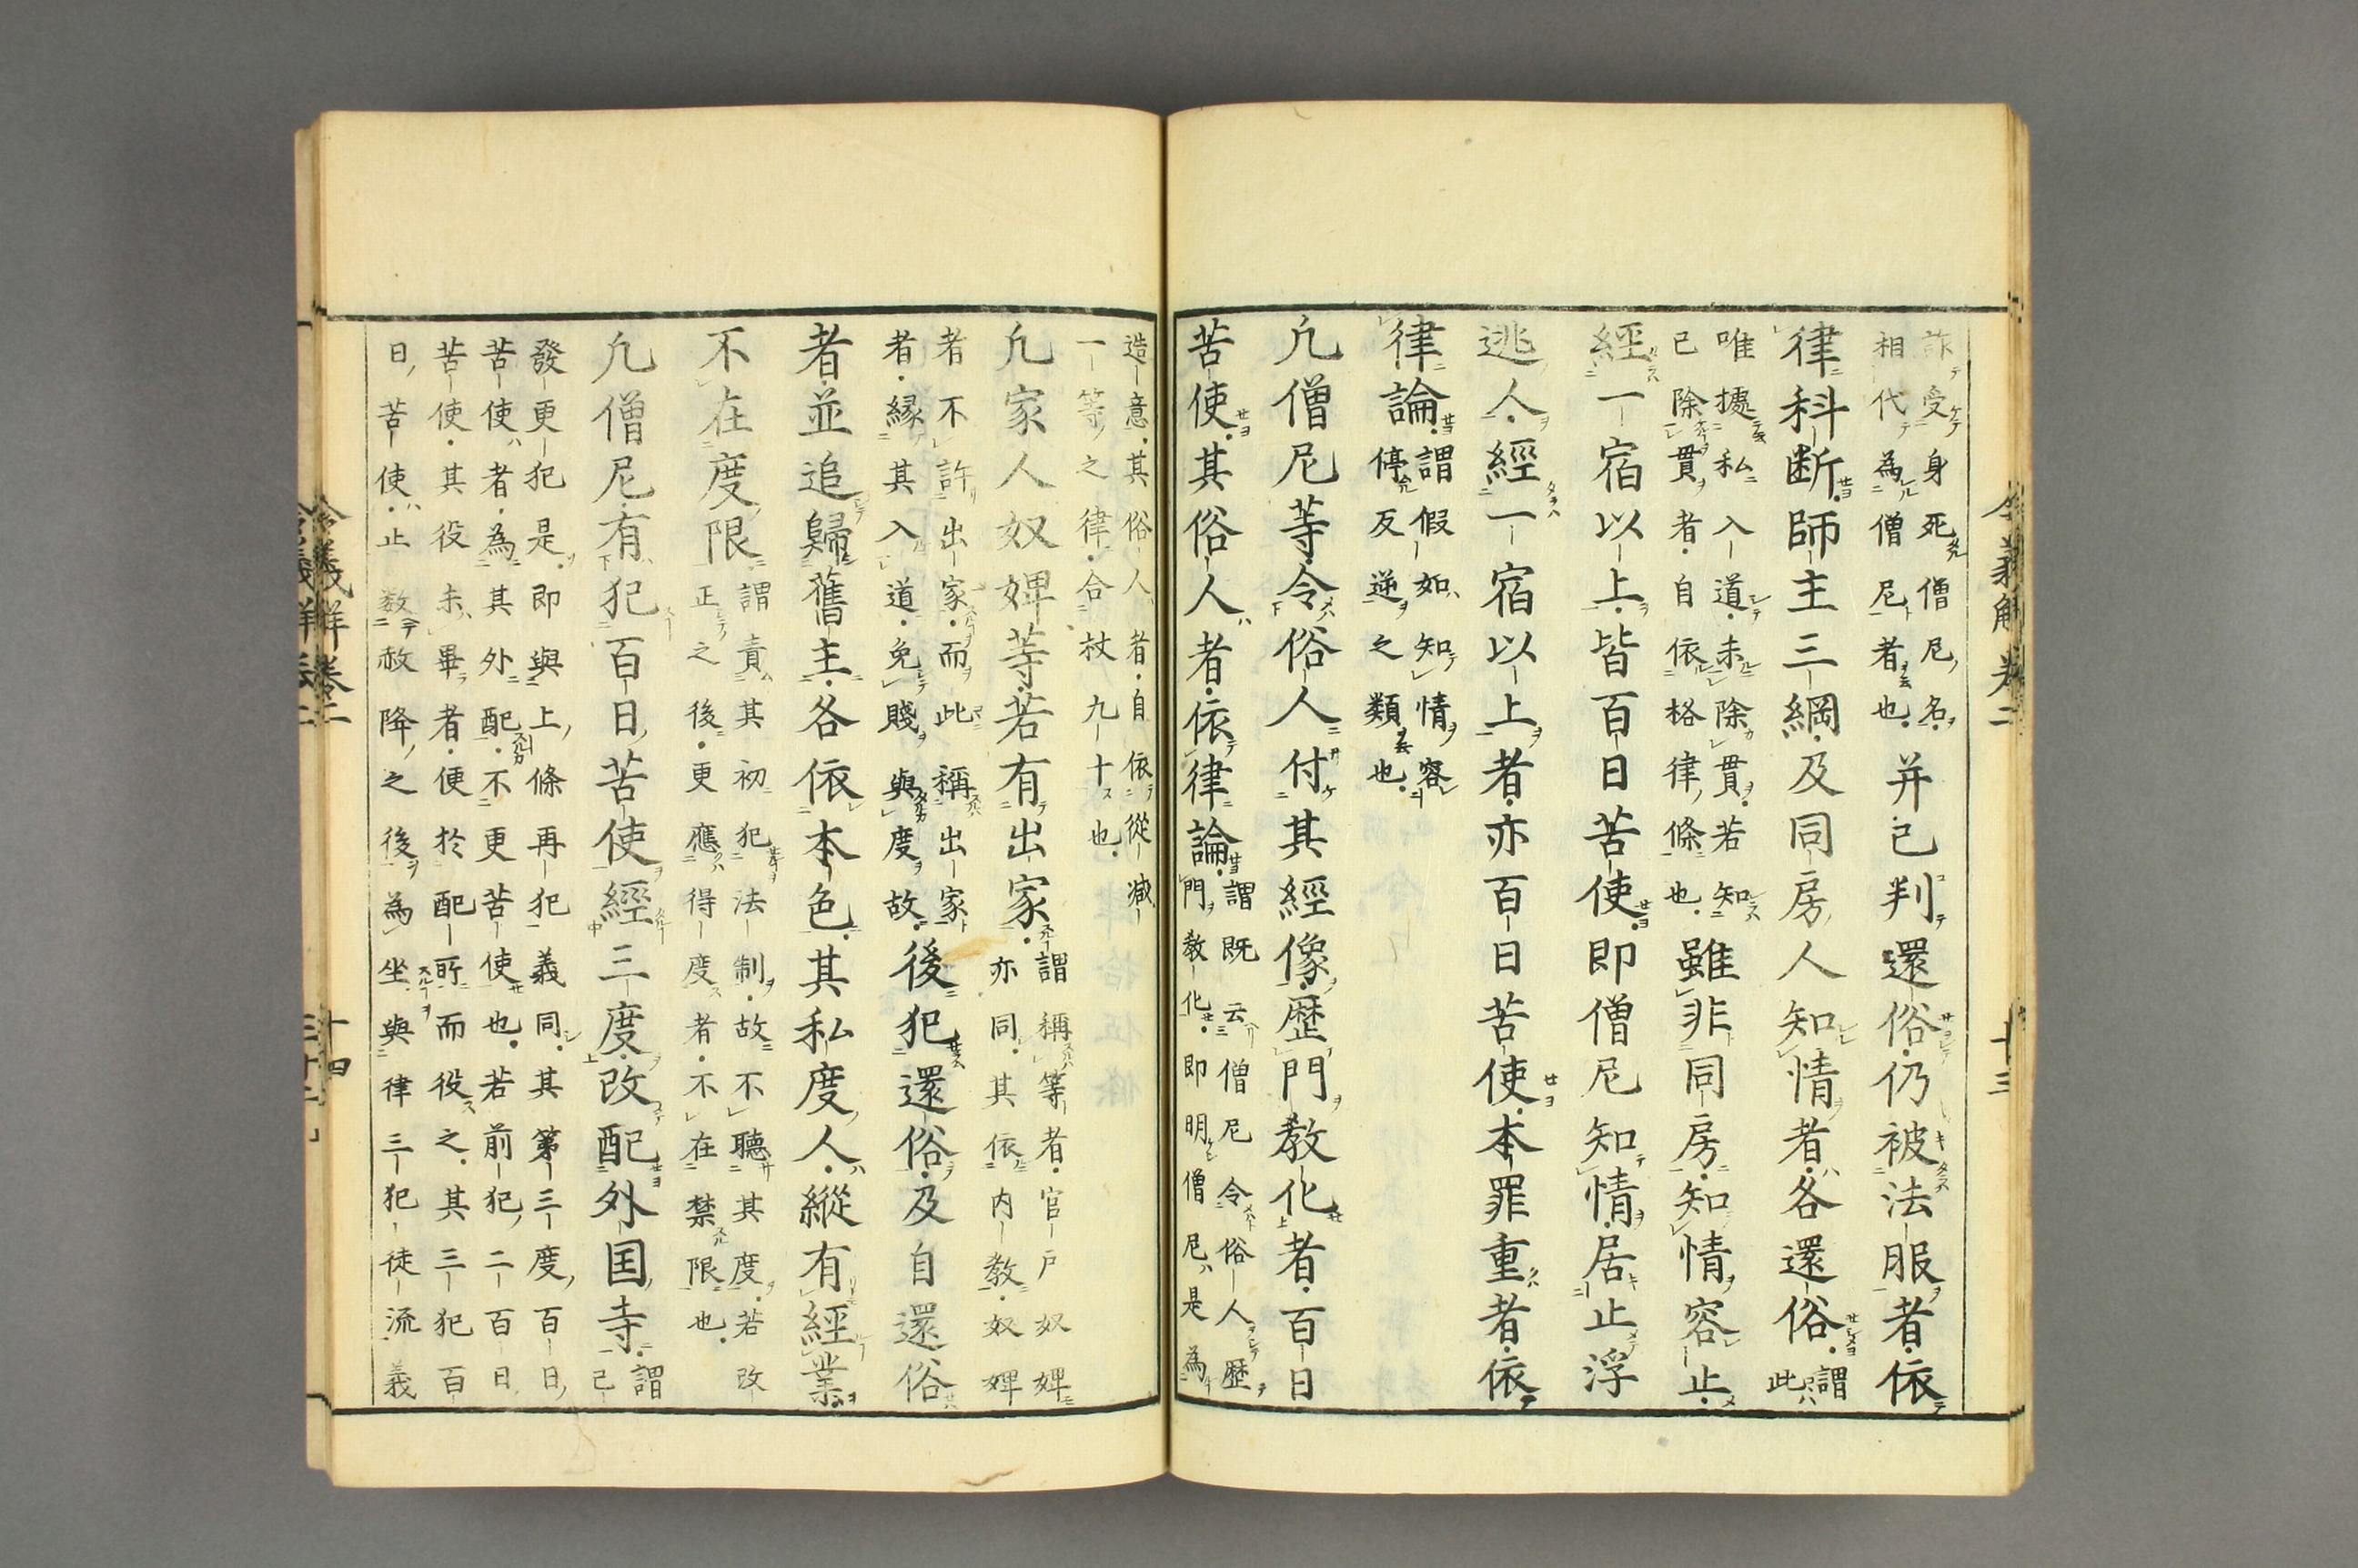 令義解卷二 十三
詐受身死僧尼名
相代為僧尼者也
并已判還俗仍被法服者依
律科断師主三綱及同房人知情者各還俗
謂
此
唯據私入道未除貫若知
已除貫者自依格律條也
雖非同房知情容止
經一宿以上皆百日苦使即僧尼知情居止浮
逃人經一宿以上者亦百日苦使本罪重者依
律論
謂假如知情容
停反逆之類也
凢僧尼等令俗人付其經像歴門教化者百日
苦使其俗人者依律論
謂既云僧尼令俗人歴
門教化即明僧尼是為
造意其俗人者自依從減
一等之律合杖九十也
凢家人奴婢等若有出家
謂稱等者官戸奴婢
亦同其依内教奴婢
者不許出家而此稱出家
者縁其入道免賤與度故
後犯還俗及自還俗
者並追歸舊主各依本色其私度人縱有經業
不在度限
謂責其初犯法制故不聽其度若改
正之後更應得度者不在禁限也
凢僧尼有犯百日苦使經三度改配外国寺
謂
已
發更犯是即與上條再犯義同其第三度百日
苦使者為其外配不更苦使也若前犯二百日
苦使其役未畢者便於配所而役之其三犯百
日苦使止数令赦降之後為坐與律三犯徒流義
令義解卷二 十四